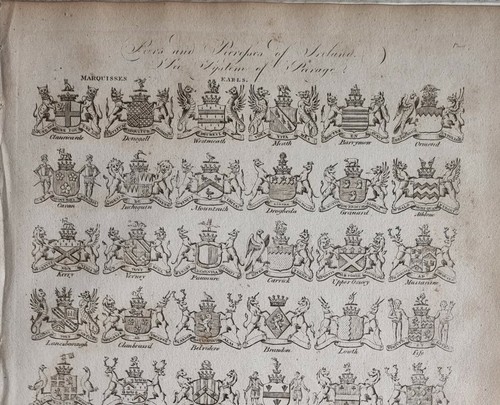 Peers and Peeresses of Ireland.
See System of Peerage
MARQUISSES EARLS.
Clanricarde Donegall Westmeath Meath Barrymore Ormond
Cavan Inchiquin Mountrath Drogheda Granard
Kerry Verney Panmure Carrick Upper Ossory Massareene
Lanesborough Glanbrassil Belvidere Brandon Louth Fife